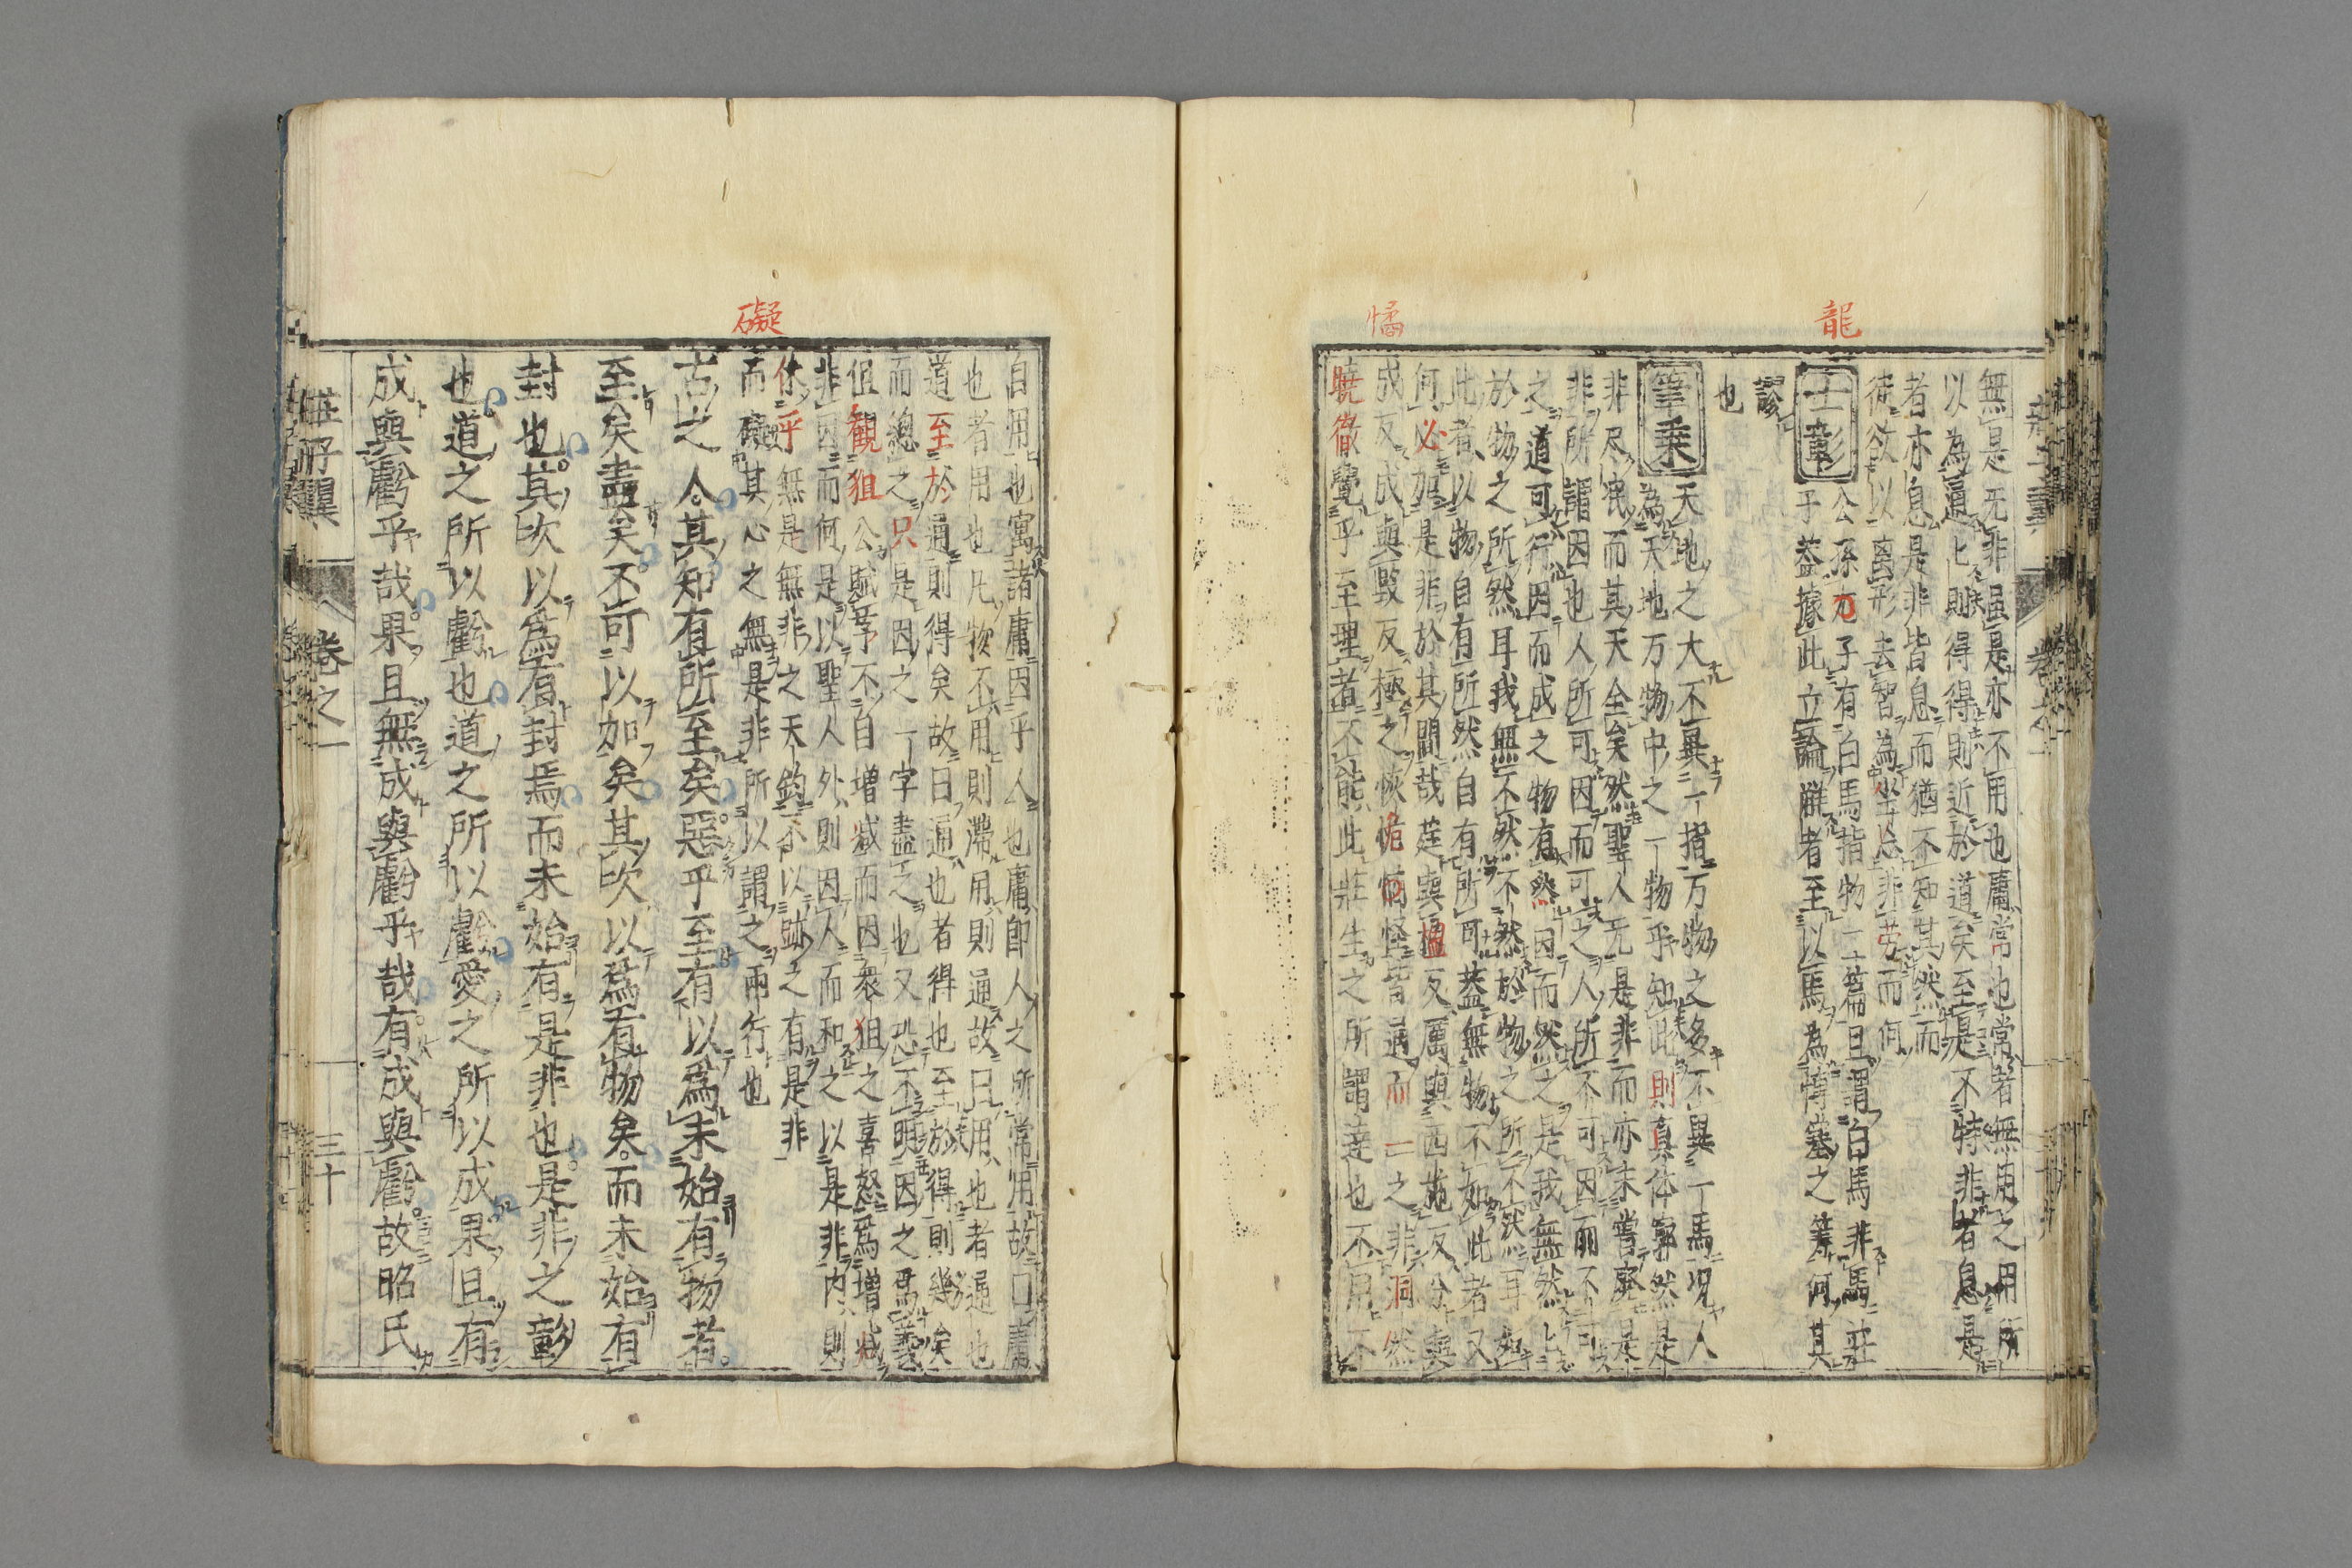 龍
憰
無是无非虽是亦不用也庸常也常者無用之用所
以為通也則得得則近於道矣至是不特非者息是
者亦息是非皆息而猶不知其然而
徒欲以离形去智為坐忘非劳而何
士彰
公孫龙子有白馬指物二篇且謂白馬非馬莊
子葢據此立論雖者至以馬為博塞之籌何其
謬
也
筆乗
天地之大不異一指万物之多不異一馬况人
為天地万物中之一物乎知此則真体寂然是
非尽泯而其天全矣然聖人无是非而亦未嘗廃是
非所謂因也人所可因而可之人所不可因而不可
之道可行因而成之物有然因而然之是我無然上
於物之所然耳我無不然不然於物之所不然耳如
此者以物自有所然自有所可葢無物不知此者又
何必加是非於其間哉莛與楹反厲與西施反分與
成反成與毀反極之恢恑憰怪皆通而一之非洞然
曉徹覺乎至理者不能此莊生之所謂達也不用不
礙
自用也寓諸庸因乎人也庸即人之所常用故曰庸
也者用也凢物不用則滯用則通故曰用也者通也
道至於通則得矣故曰通也者得也至於得則幾矣
而總之只是因之一字盡之也又恐不明因之爲義
但觀狙公賦芧不自增减而因衆狙之喜怒爲增减
非因而何是以聖人外則因人而和之以是非内則
休乎無是無非之天鈞不以跡之有是非
而礙其心之無是非所以謂之兩行也
古之人其知有所至矣惡乎至有以爲未始有物者
至矣盡矣不可以加矣其次以爲有物矣而未始有
封也其次以爲有封焉而未始有是非也是非之彰
也道之所以虧也道之所以虧愛之所以成果且有
成與虧乎哉果且無成與虧乎哉有成與虧故昭氏
莊子翼
卷之一
三十